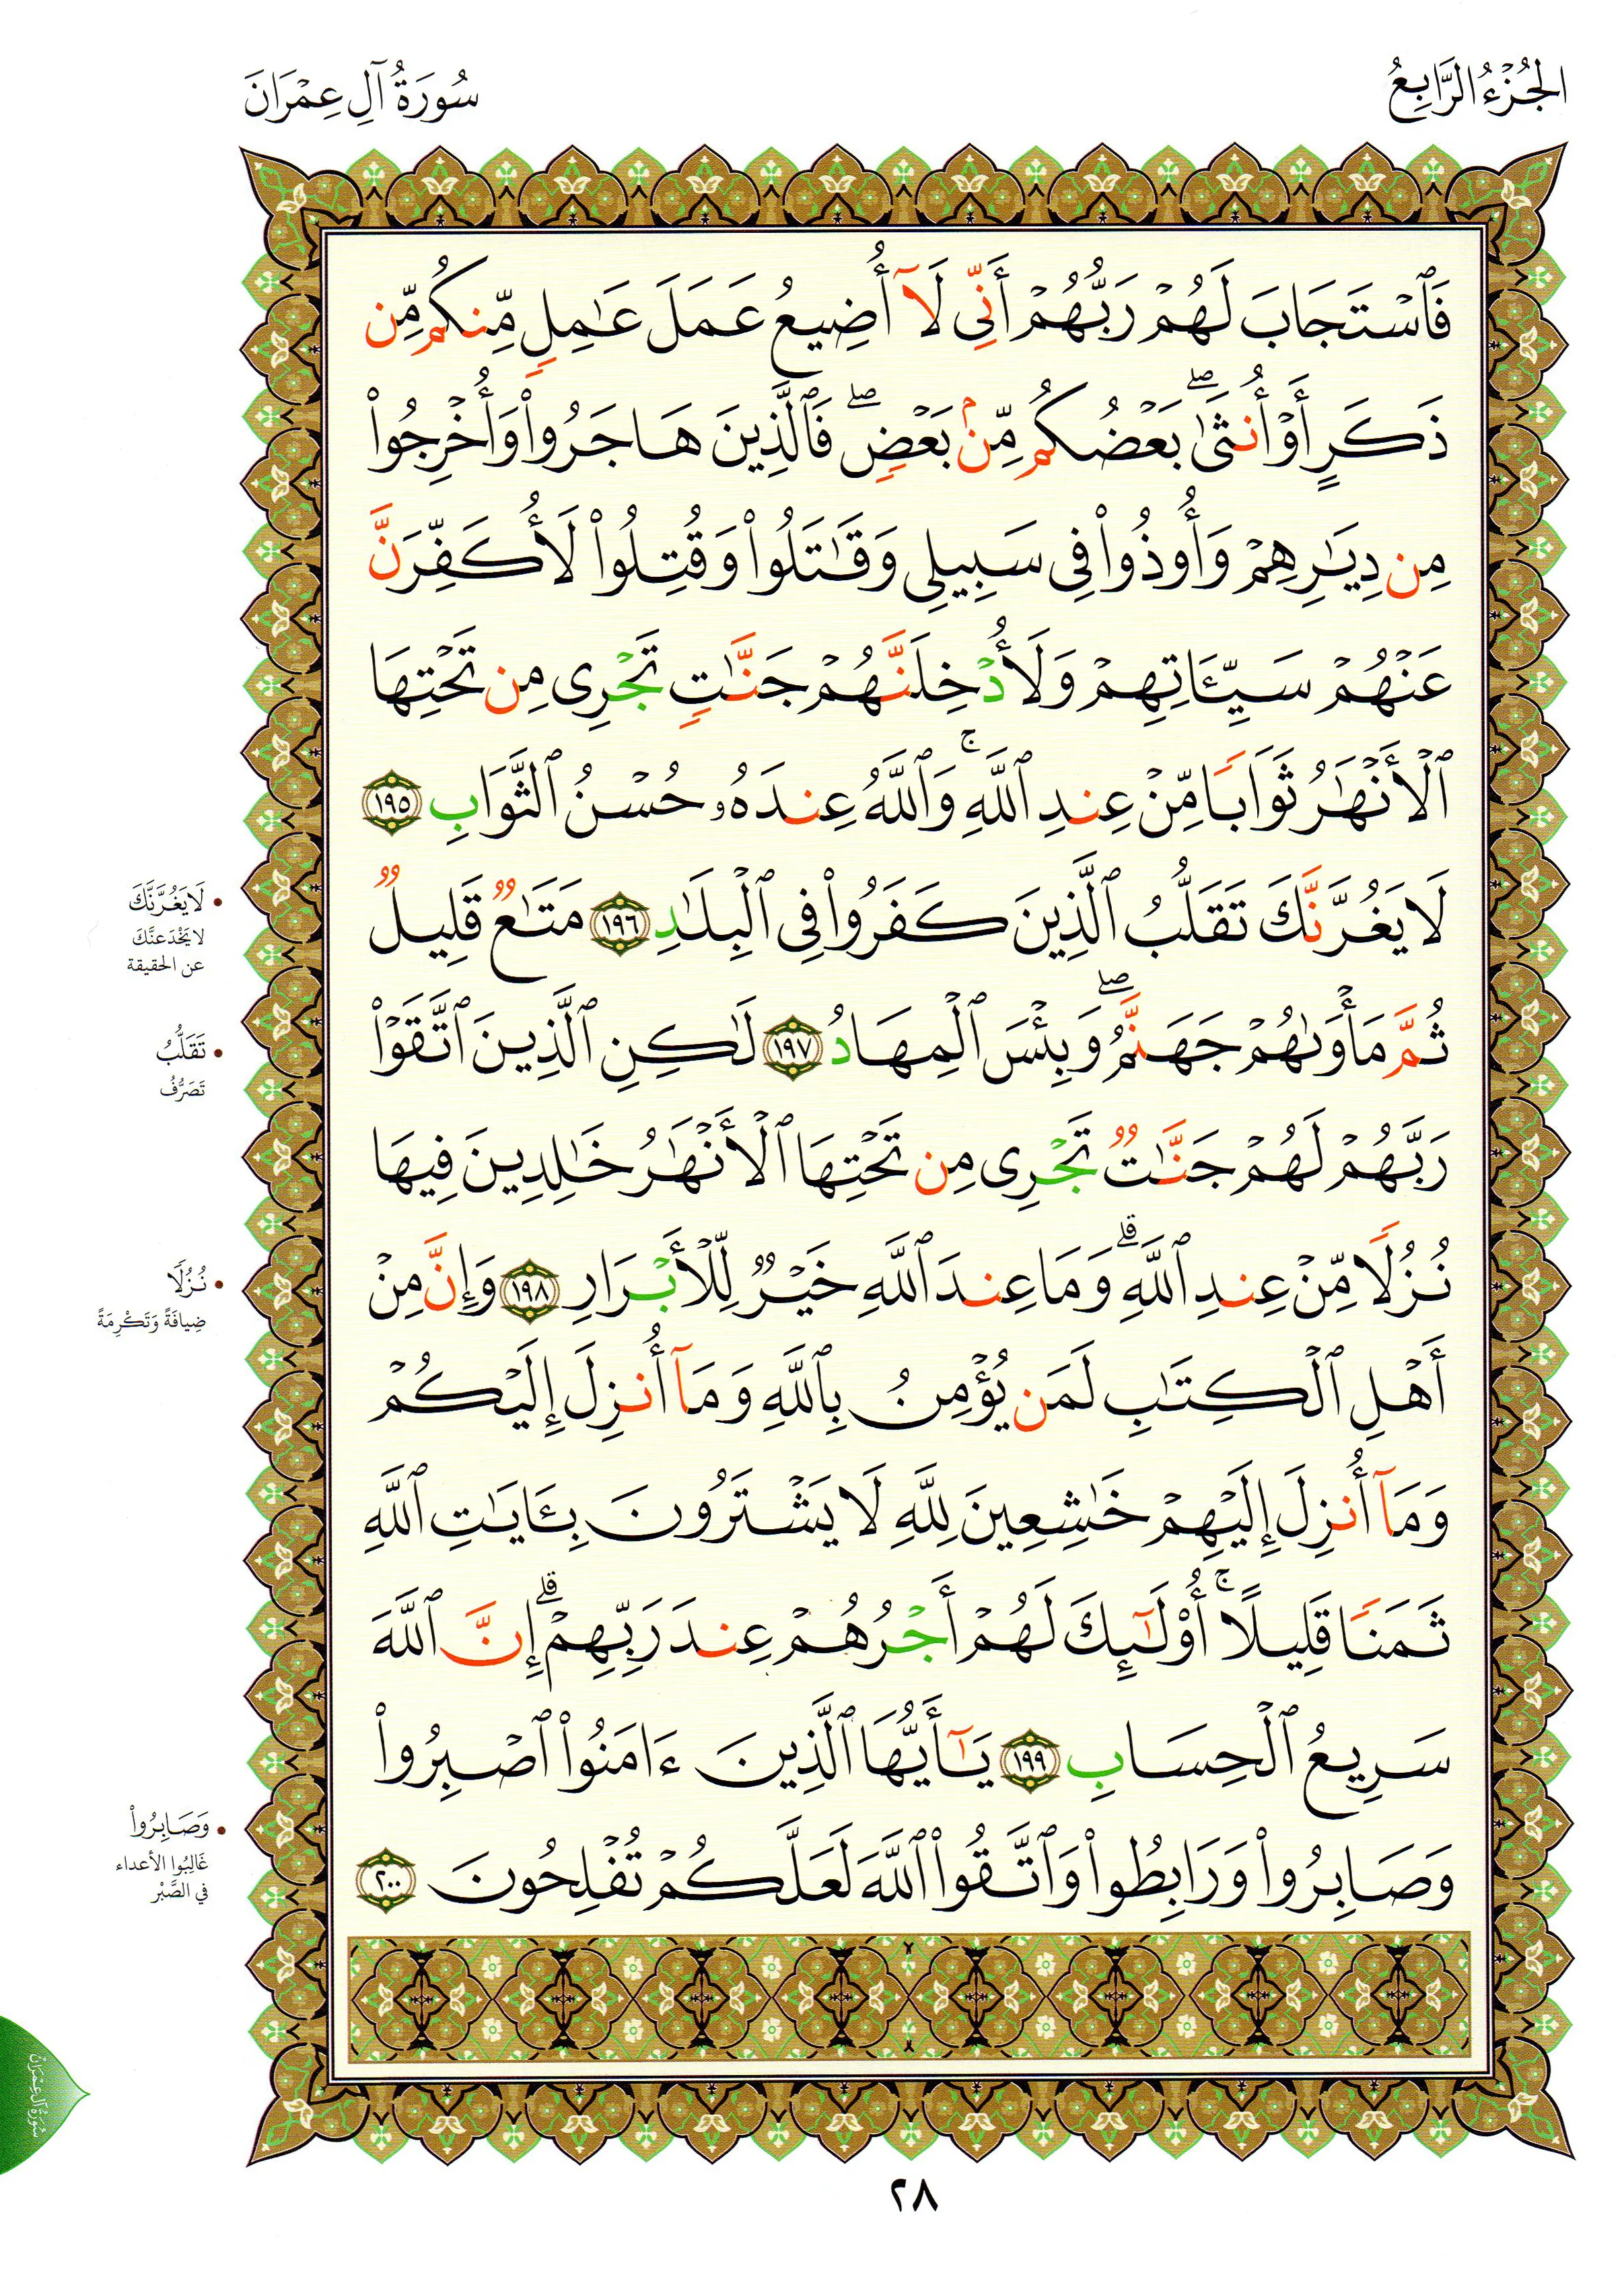 الجُزْءُ الرَّابِعُ
سُورَةُ آلِ عِمْرَانَ
فَٱسْتَجَابَ لَهُمْ رَبُّهُمْ أَنِّى لَآ أُضِيعُ عَمَلَ عَـٰمِلٍ مِّنكُم مِّن
ذَكَرٍ أَوْ أُنثَىٰ ۖ بَعْضُكُم مِّنۢ بَعْضٍ ۖ فَٱلَّذِينَ هَاجَرُوا۟ وَأُخْرِجُوا۟
مِن دِيَـٰرِهِمْ وَأُوذُوا۟ فِى سَبِيلِى وَقَـٰتَلُوا۟ وَقُتِلُوا۟ لَأُكَفِّرَنَّ
عَنْهُمْ سَيِّـَٔاتِهِمْ وَلَأُدْخِلَنَّهُمْ جَنَّـٰتٍ تَجْرِى مِن تَحْتِهَا
ٱلْأَنْهَـٰرُ ثَوَابًا مِّنْ عِندِ ٱللَّهِ ۚ وَٱللَّهُ عِندَهُۥ حُسْنُ ٱلثَّوَابِ ١٩٥
لَا يَغُرَّنَّكَ تَقَلُّبُ ٱلَّذِينَ كَفَرُوا۟ فِى ٱلْبِلَـٰدِ ١٩٦ مَتَـٰعٌ قَلِيلٌ
ثُمَّ مَأْوَىٰهُمْ جَهَنَّمُ ۖ وَبِئْسَ ٱلْمِهَادُ ١٩٧ لَـٰكِنِ ٱلَّذِينَ ٱتَّقَوْا۟
رَبَّهُمْ لَهُمْ جَنَّـٰتٌ تَجْرِى مِن تَحْتِهَا ٱلْأَنْهَـٰرُ خَـٰلِدِينَ فِيهَا
نُزُلًا مِّنْ عِندِ ٱللَّهِ ۗ وَمَا عِندَ ٱللَّهِ خَيْرٌ لِّلْأَبْرَارِ ١٩٨ وَإِنَّ مِنْ
أَهْلِ ٱلْكِتَـٰبِ لَمَن يُؤْمِنُ بِٱللَّهِ وَمَآ أُنزِلَ إِلَيْكُمْ
وَمَآ أُنزِلَ إِلَيْهِمْ خَـٰشِعِينَ لِلَّهِ لَا يَشْتَرُونَ بِـَٔايَـٰتِ ٱللَّهِ
ثَمَنًا قَلِيلًا ۚ أُو۟لَـٰٓئِكَ لَهُمْ أَجْرُهُمْ عِندَ رَبِّهِمْ ۗ إِنَّ ٱللَّهَ
سَرِيعُ ٱلْحِسَابِ ١٩٩ يَـٰٓأَيُّهَا ٱلَّذِينَ ءَامَنُوا۟ ٱصْبِرُوا۟
وَصَابِرُوا۟ وَرَابِطُوا۟ وَٱتَّقُوا۟ ٱللَّهَ لَعَلَّكُمْ تُفْلِحُونَ ٢٠٠
• لَا يَغُرَّنَّكَ
لا يَخْدَعنَّكَ
عن الحقيقة
• تَقَلُّبُ
تَصَرُّفُ
• نُزُلًا
ضِيافَةً وَتَكْرِمَةً
• وَصَابِرُوا۟
غَالِبُوا الأعداء
في الصَّبْرِ
سُورَةُ آلِ عِمْرَانَ
٢٨